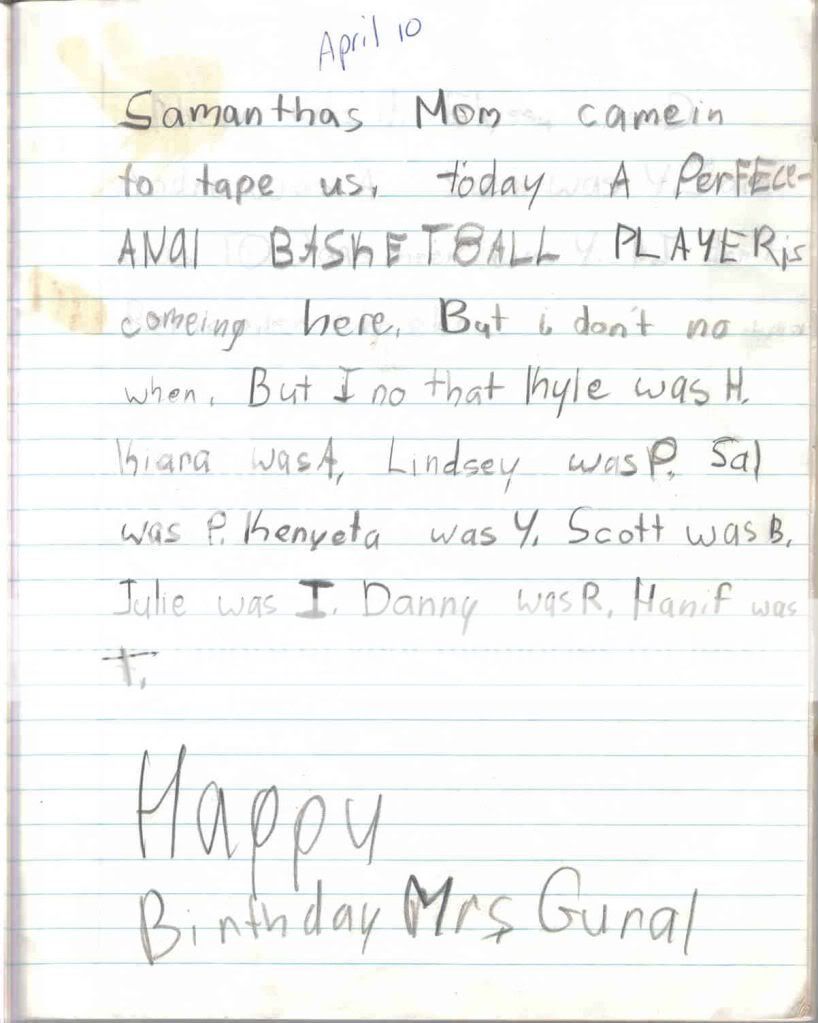 April 10
Samanthas Mom camein
to tape us, today A PerFECC-
ANAl BASkETBALL PLAYER is
comeing here. But i don't no
when. But I no that Khyle was H.
Kiara was A, Lindsey was P. Sal
was P. Kenyeta was Y. Scott was B.
Julie was I. Danny was R. Hanif was
T.
Happy
Birthday Mrs Gunal